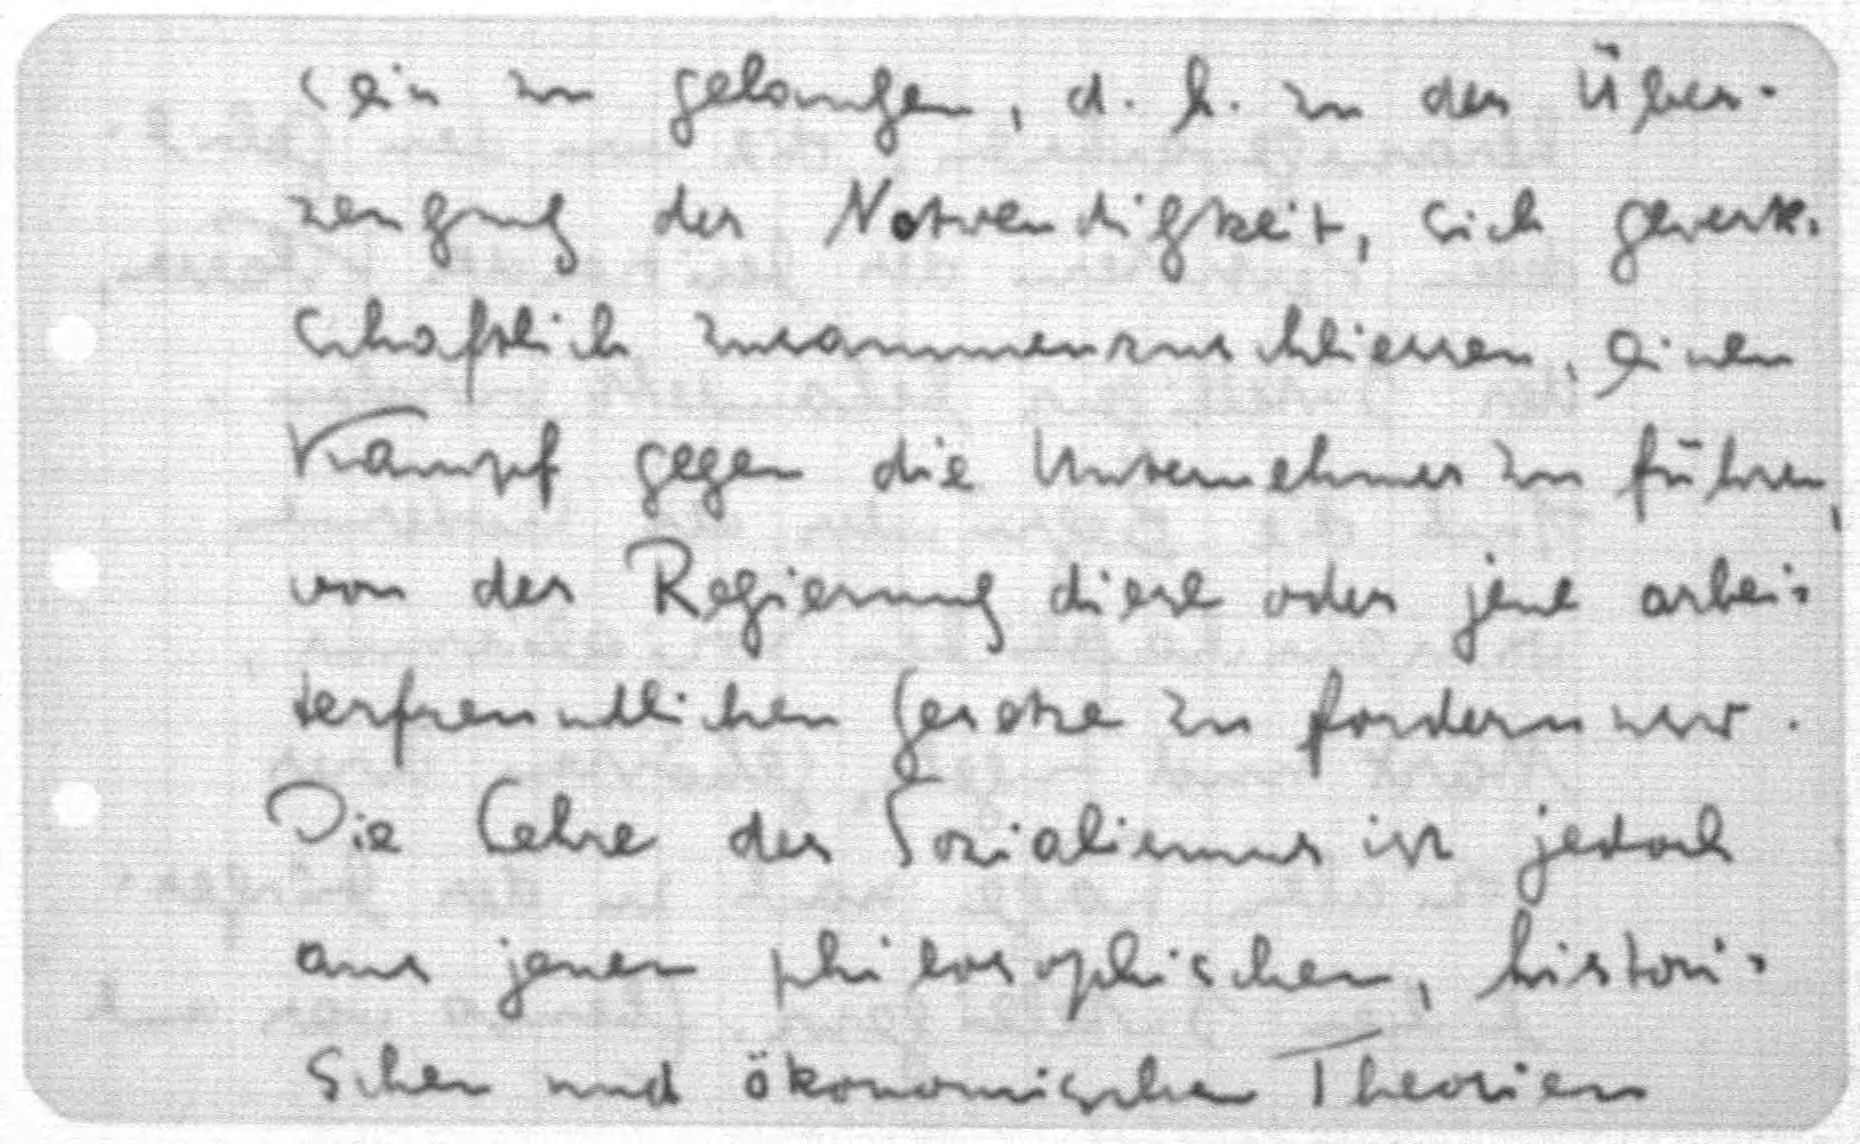 sein zu gelangen, d. h. zu der Über-
zeugung der Notwendigkeit, sich gewerk-
schaftlich zusammenzuschliessen, einen
Kampf gegen die Unternehmer zu führen,
von der Regierung diese oder jene arbei-
terfreundlichen Gesetze zu fordern usw.
Die Lehre des Sozialismus ist jedoch
aus jenen philosophischen, histori-
schen und ökonomischen Theorien